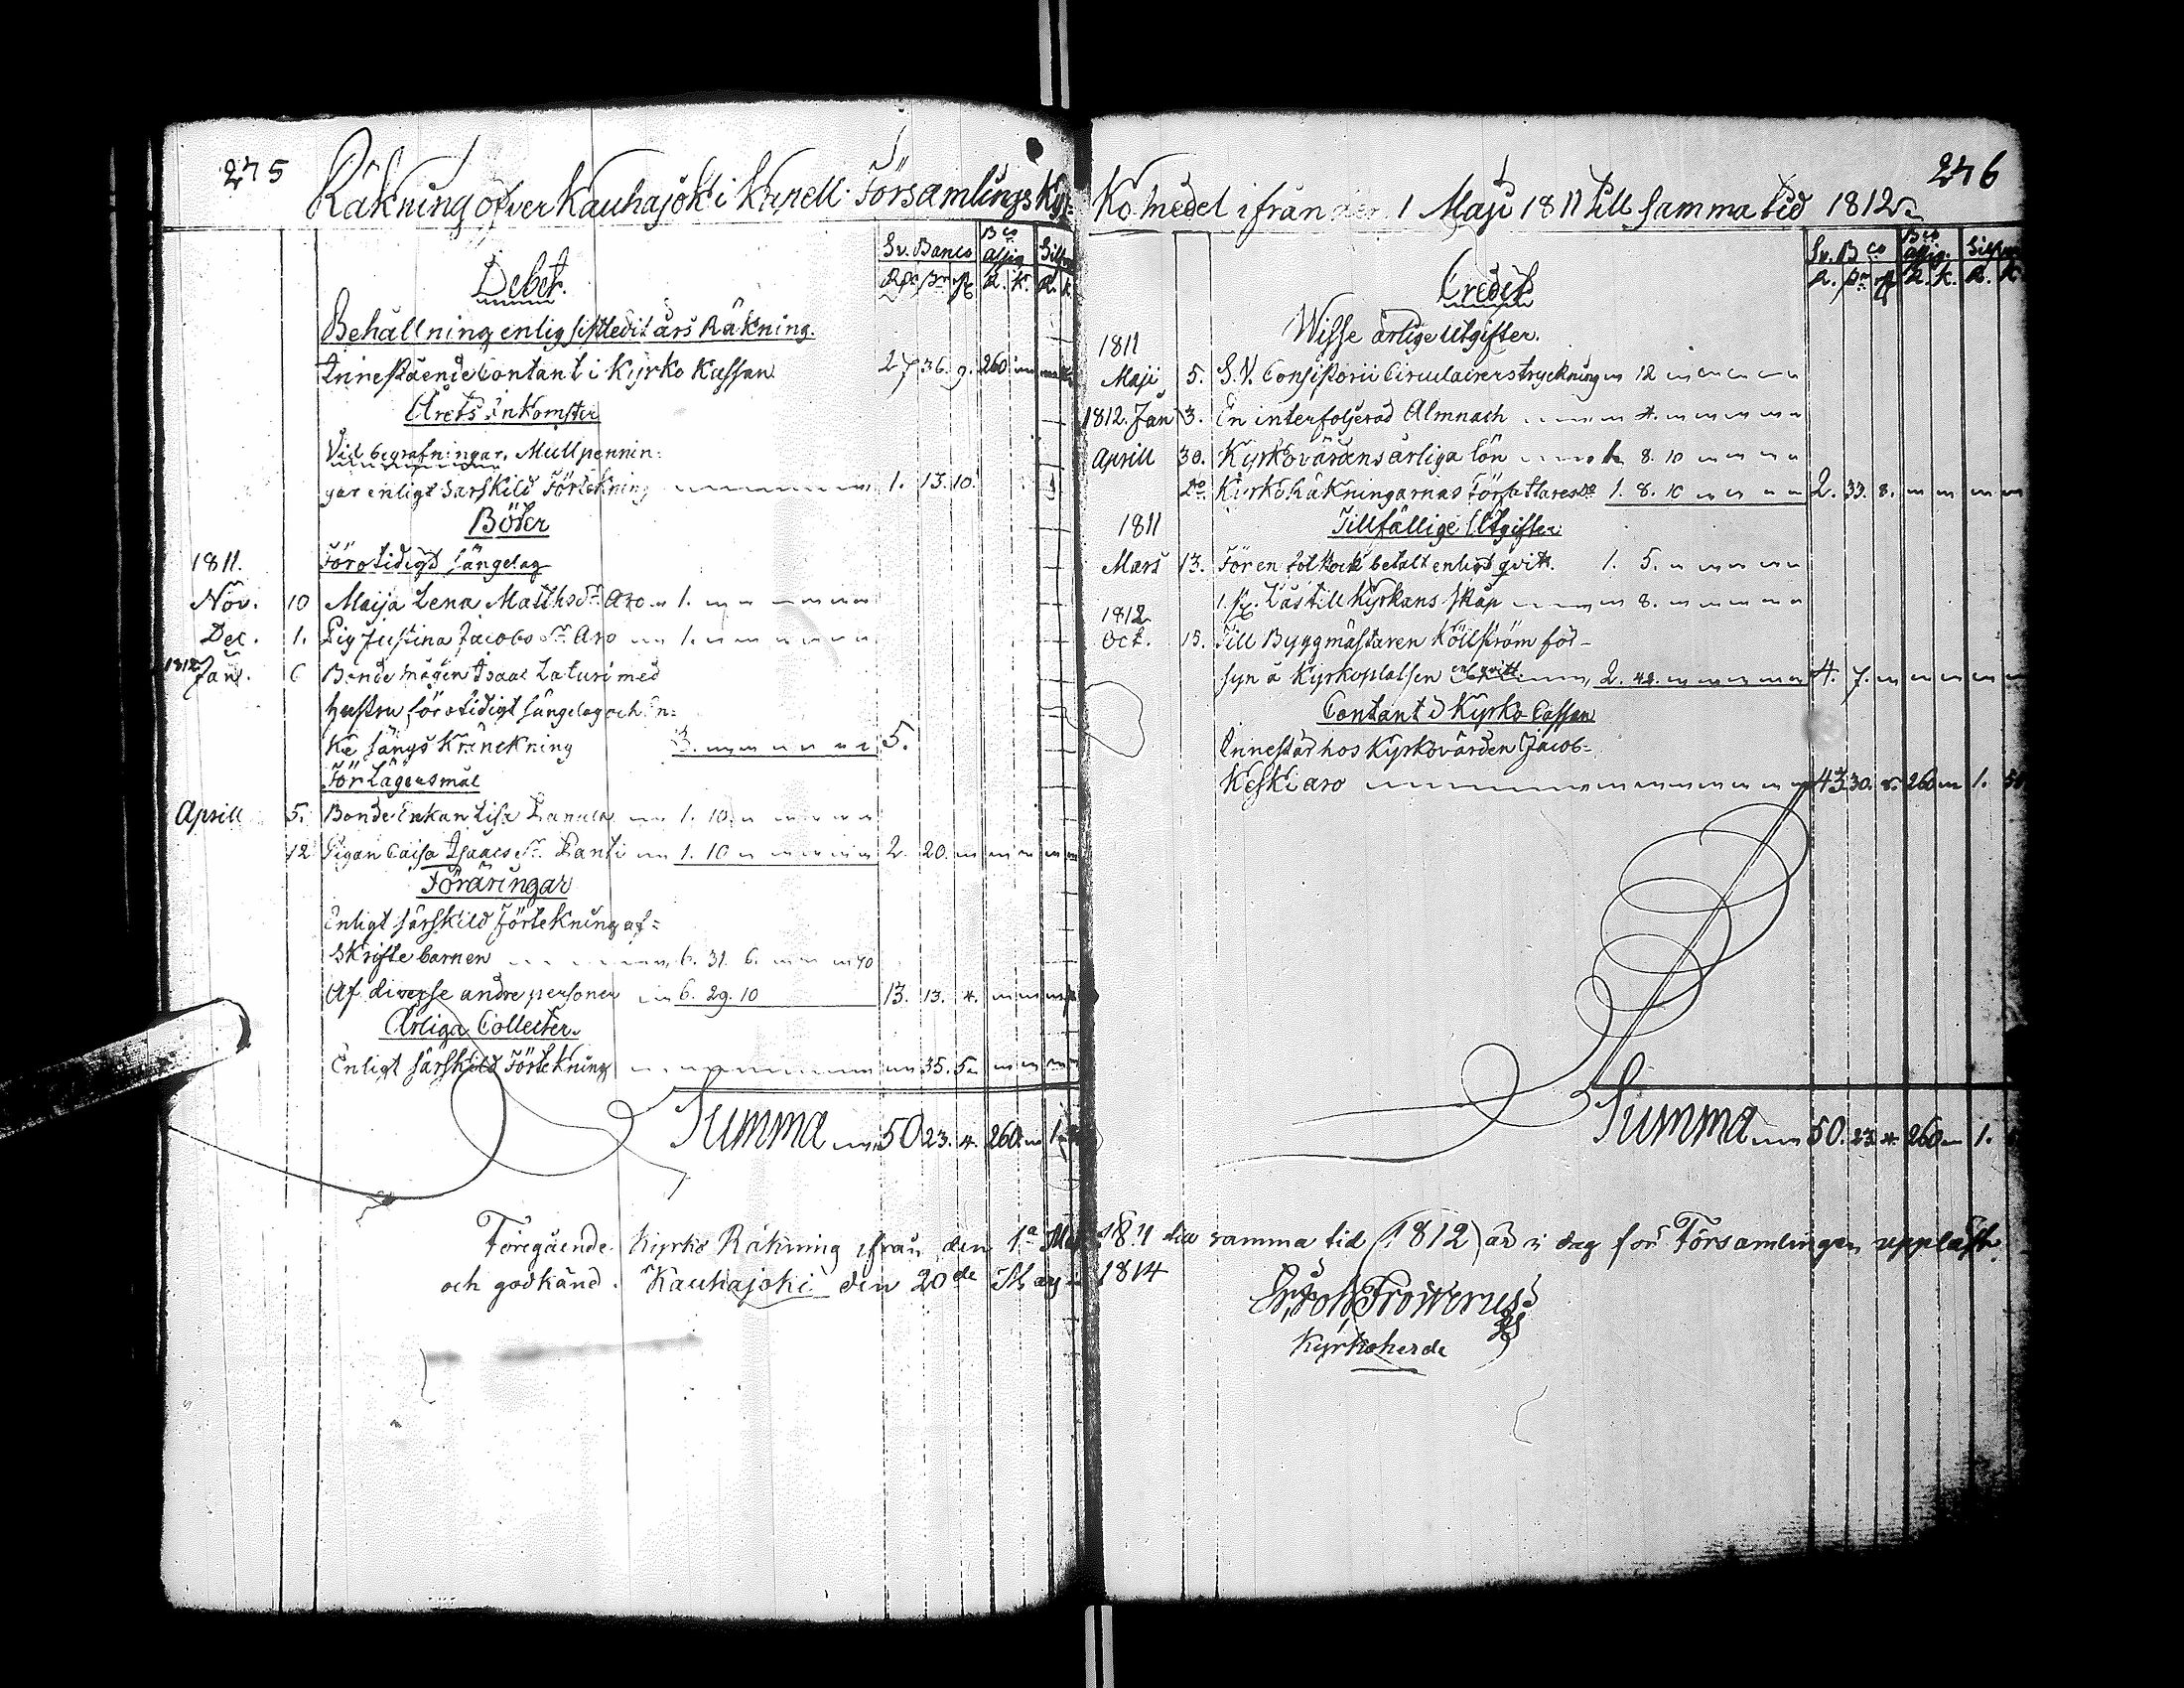 275
Räkning öfver Kauhajoki Kapell Församlings Kyr-
Sv. Banco Bco assign. Silfver
Debet.
R. K. R. K.
Behållning enlig sistledit års Räkning.
Innestående Contant i Kyrko Kassan 27 36. 9. 260
Årets inkomster
Vid begrafningar, Mullpennin:
gar enligt Särskild Förtekning 1. 13. 10.
Böter
1811. För otidigt sängelag
Nov. 10 Maija Lena Matthsdr. Aro 1.
Dec. 1. Pig Justina Jacobs dr. Aro 1.
1812 Jan. 6 Bonde mågen Isaac Laturi med
hustru för otidigt sängelag och En:
ke sängs Kränckning 3. 5.
För Lägersmål
Aprill 5. Bonde Enkan Lisa 1. 10.
12 Pigan Caisa Isaacs dr. Panti 1. 10 2. 20.
Föräringar
Enligt särskild Förtekning af=
Skrifte barnen 6. 31. 6. 40
Af diverse andre personer 6. 29. 10 13. 13. 4.
Årliga Collecter.
Enligt särskild Förtekning 35. 5
Summa 50 23. 4. 260. 1.
Föregående Kyrko Räkning ifrån den 1a Maji
och godkänd. Kauhajoki den 20de Maji
246
Ko. medel ifrån den 1 Maji 1811 till samma tid 1812
Sv. Bco Bco assig. Silfver
Credit
R. K. R. K.
1811 Wisse årlige Utgifter.
Maji 5. S. V. Consistorii Circulairers tryckning 12
1812. Jan 3. En interfolierad Almnach 4.
Aprill 30. Kyrkovärdens årliga lön 1. 8. 10
Do. Kyrko Räkningarnas Författares do 1. 8. 10 2. 33. 8.
1811 Tillfällige Utgifter
Mars 13. För en betalt enligt qvitt. 1. 5.
1 st. Lås till Kyrkans skåp 8.
1812
Oct. 15. Till ByggmästarenKöllström för
syn å Kyrkoplatsen enl. qvitt. 2. 42. 4. 7.
Contant i Kyrko Cassan
Innestår hos Kyrkovärden Jacob-
Keski aro 43. 30. 8. 260 1. 50
Summa 50. 23. 4. 260 1.
1811 till samma tid (1812) är i dag för Församlingen uppläst
1814
Joh Frosterus
Kyrkoherde